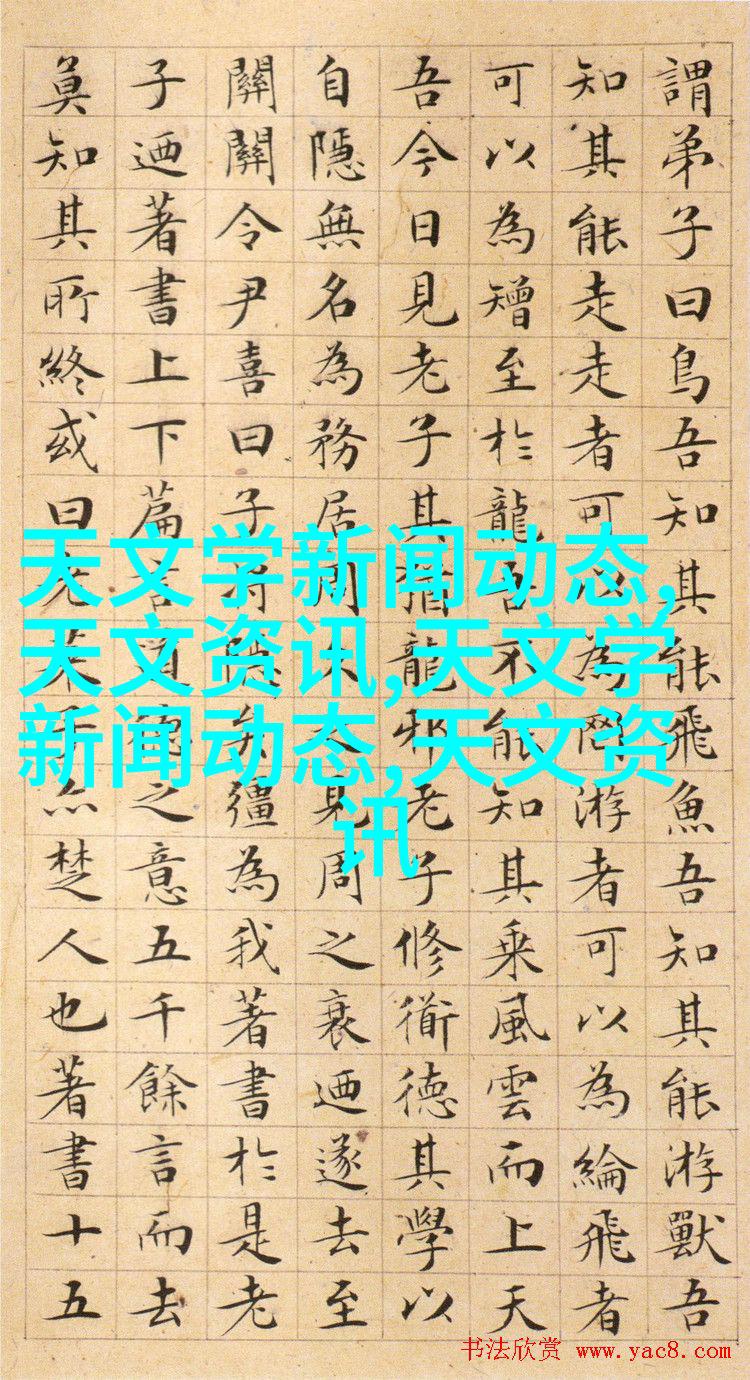 謂弟子曰鳥吾知其能飛魚吾知其能游獸吾
知其能走走者可以為罔游者可以為綸飛者
可以為矰至於龍吾不能知其乘風雲而上天
吾今日見老子其猶龍邪老子修衜德其學以
自隱無名為務居周久之見周之衰迺遂去至
關關令尹喜曰子將隱矣彊為我著書於是老
子迺著書上下篇言道德之意五千餘言而去
莫知其所終或曰老萊子亦楚人也著書十五
天文学新闻动态,
天文资讯,天文学
新闻动态,天文资
讯
书法欣赏 www.yac8.com